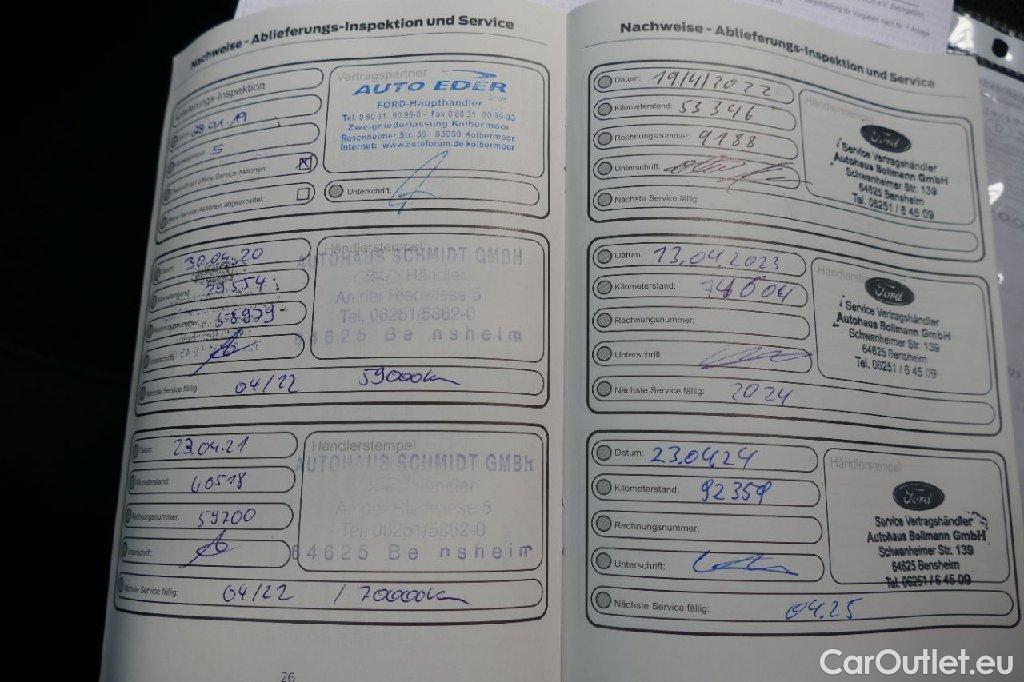 Nachweise - Ablieferungs-Inspektion und Service
Ablieferungs-Inspektion
28.01.19
5
Vertragspartner
AUTO EDER
FORD-Haupthändler
Tel. 0 80 31 - 90 99-0 - fax 0 80 31 - 90 99-93
Zweigniederlassung Kolbermoor
Rosenheimer Str. 59 83059 Kolbermoor
Internet: www.autoforum.de/kolbermoor
Unterschrift:
Datum:
30.04.20
Händlerstempel
AUTOHAUS SCHMIDT GMBH
Händler
An der Riedwiese 5
Tel. 06251/5862-0
64625 Bensheim
Nächste Service fällig: 04/22 59000km
Datum: 23.04.21
Kilometerstand: 40518
Rechnungsnummer: 59200
Unterschrift:
Händlerstempel
AUTOHAUS SCHMIDT GMBH
Händler
An der Riedwiese 5
Tel. 06251/5862-0
64625 Bensheim
Nächste Service fällig: 04/22 / 70000km
26
Nachweise - Ablieferungs-Inspektion und Service
Datum: 19/4/2022
Kilometerstand: 53346
Rechnungsnummer: 9188
Unterschrift:
Nächste Service fällig:
Händlerstempel
Ford
Service Vertragshändler
Autohaus Bollmann GmbH
Schwanheimer Str. 139
64625 Bensheim
Tel. 06251 / 6 45 09
Datum: 13.04.2023
Kilometerstand: 74604
Rechnungsnummer:
Unterschrift:
Nächste Service fällig: 2024
Händlerstempel
Ford
Service Vertragshändler
Autohaus Bollmann GmbH
Schwanheimer Str. 139
64625 Bensheim
Tel. 06251 / 6 45 09
Datum: 23.04.24
Kilometerstand: 92359
Rechnungsnummer:
Unterschrift:
Nächste Service fällig: 04.25
Händlerstempel
Ford
Service Vertragshändler
Autohaus Bollmann GmbH
Schwanheimer Str. 139
64625 Bensheim
Tel. 06251 / 6 45 09
CarOutlet.eu